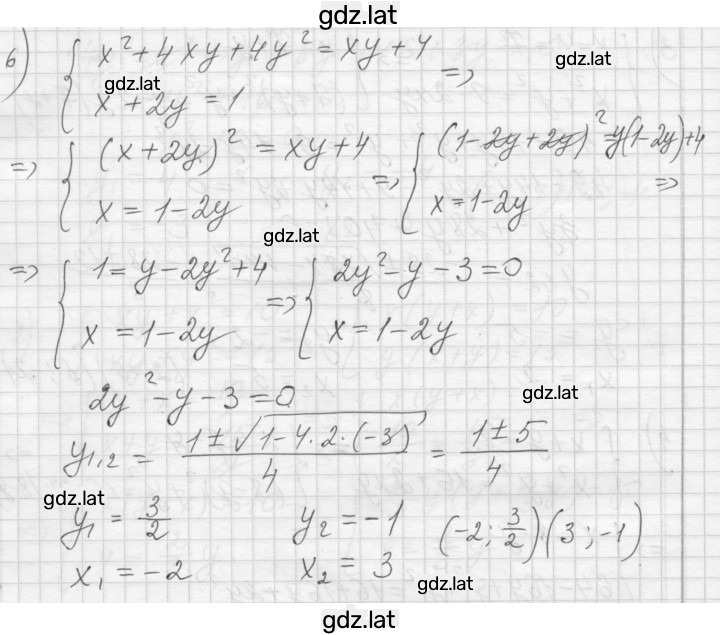 gdz.lat
б) { x² + 4xy + 4y² = xy + 4
gdz.lat
gdz.lat
x + 2y = 1 =>
=> { (x + 2y)² = xy + 4 => { (1 - 2y + 2y)² = y(1 - 2y) + 4
x = 1 - 2y x = 1 - 2y =>
gdz.lat
=> { 1 = y - 2y² + 4 => { 2y² - y - 3 = 0
x = 1 - 2y x = 1 - 2y
2y² - y - 3 = 0
gdz.lat
y₁,₂ = (1 ± √(1 - 4·2·(-3)))/4 = (1 ± 5)/4
gdz.lat
y₁ = 3/2 y₂ = -1 (-2; 3/2) (3; -1)
x₁ = -2 x₂ = 3
gdz.lat
gdz.lat